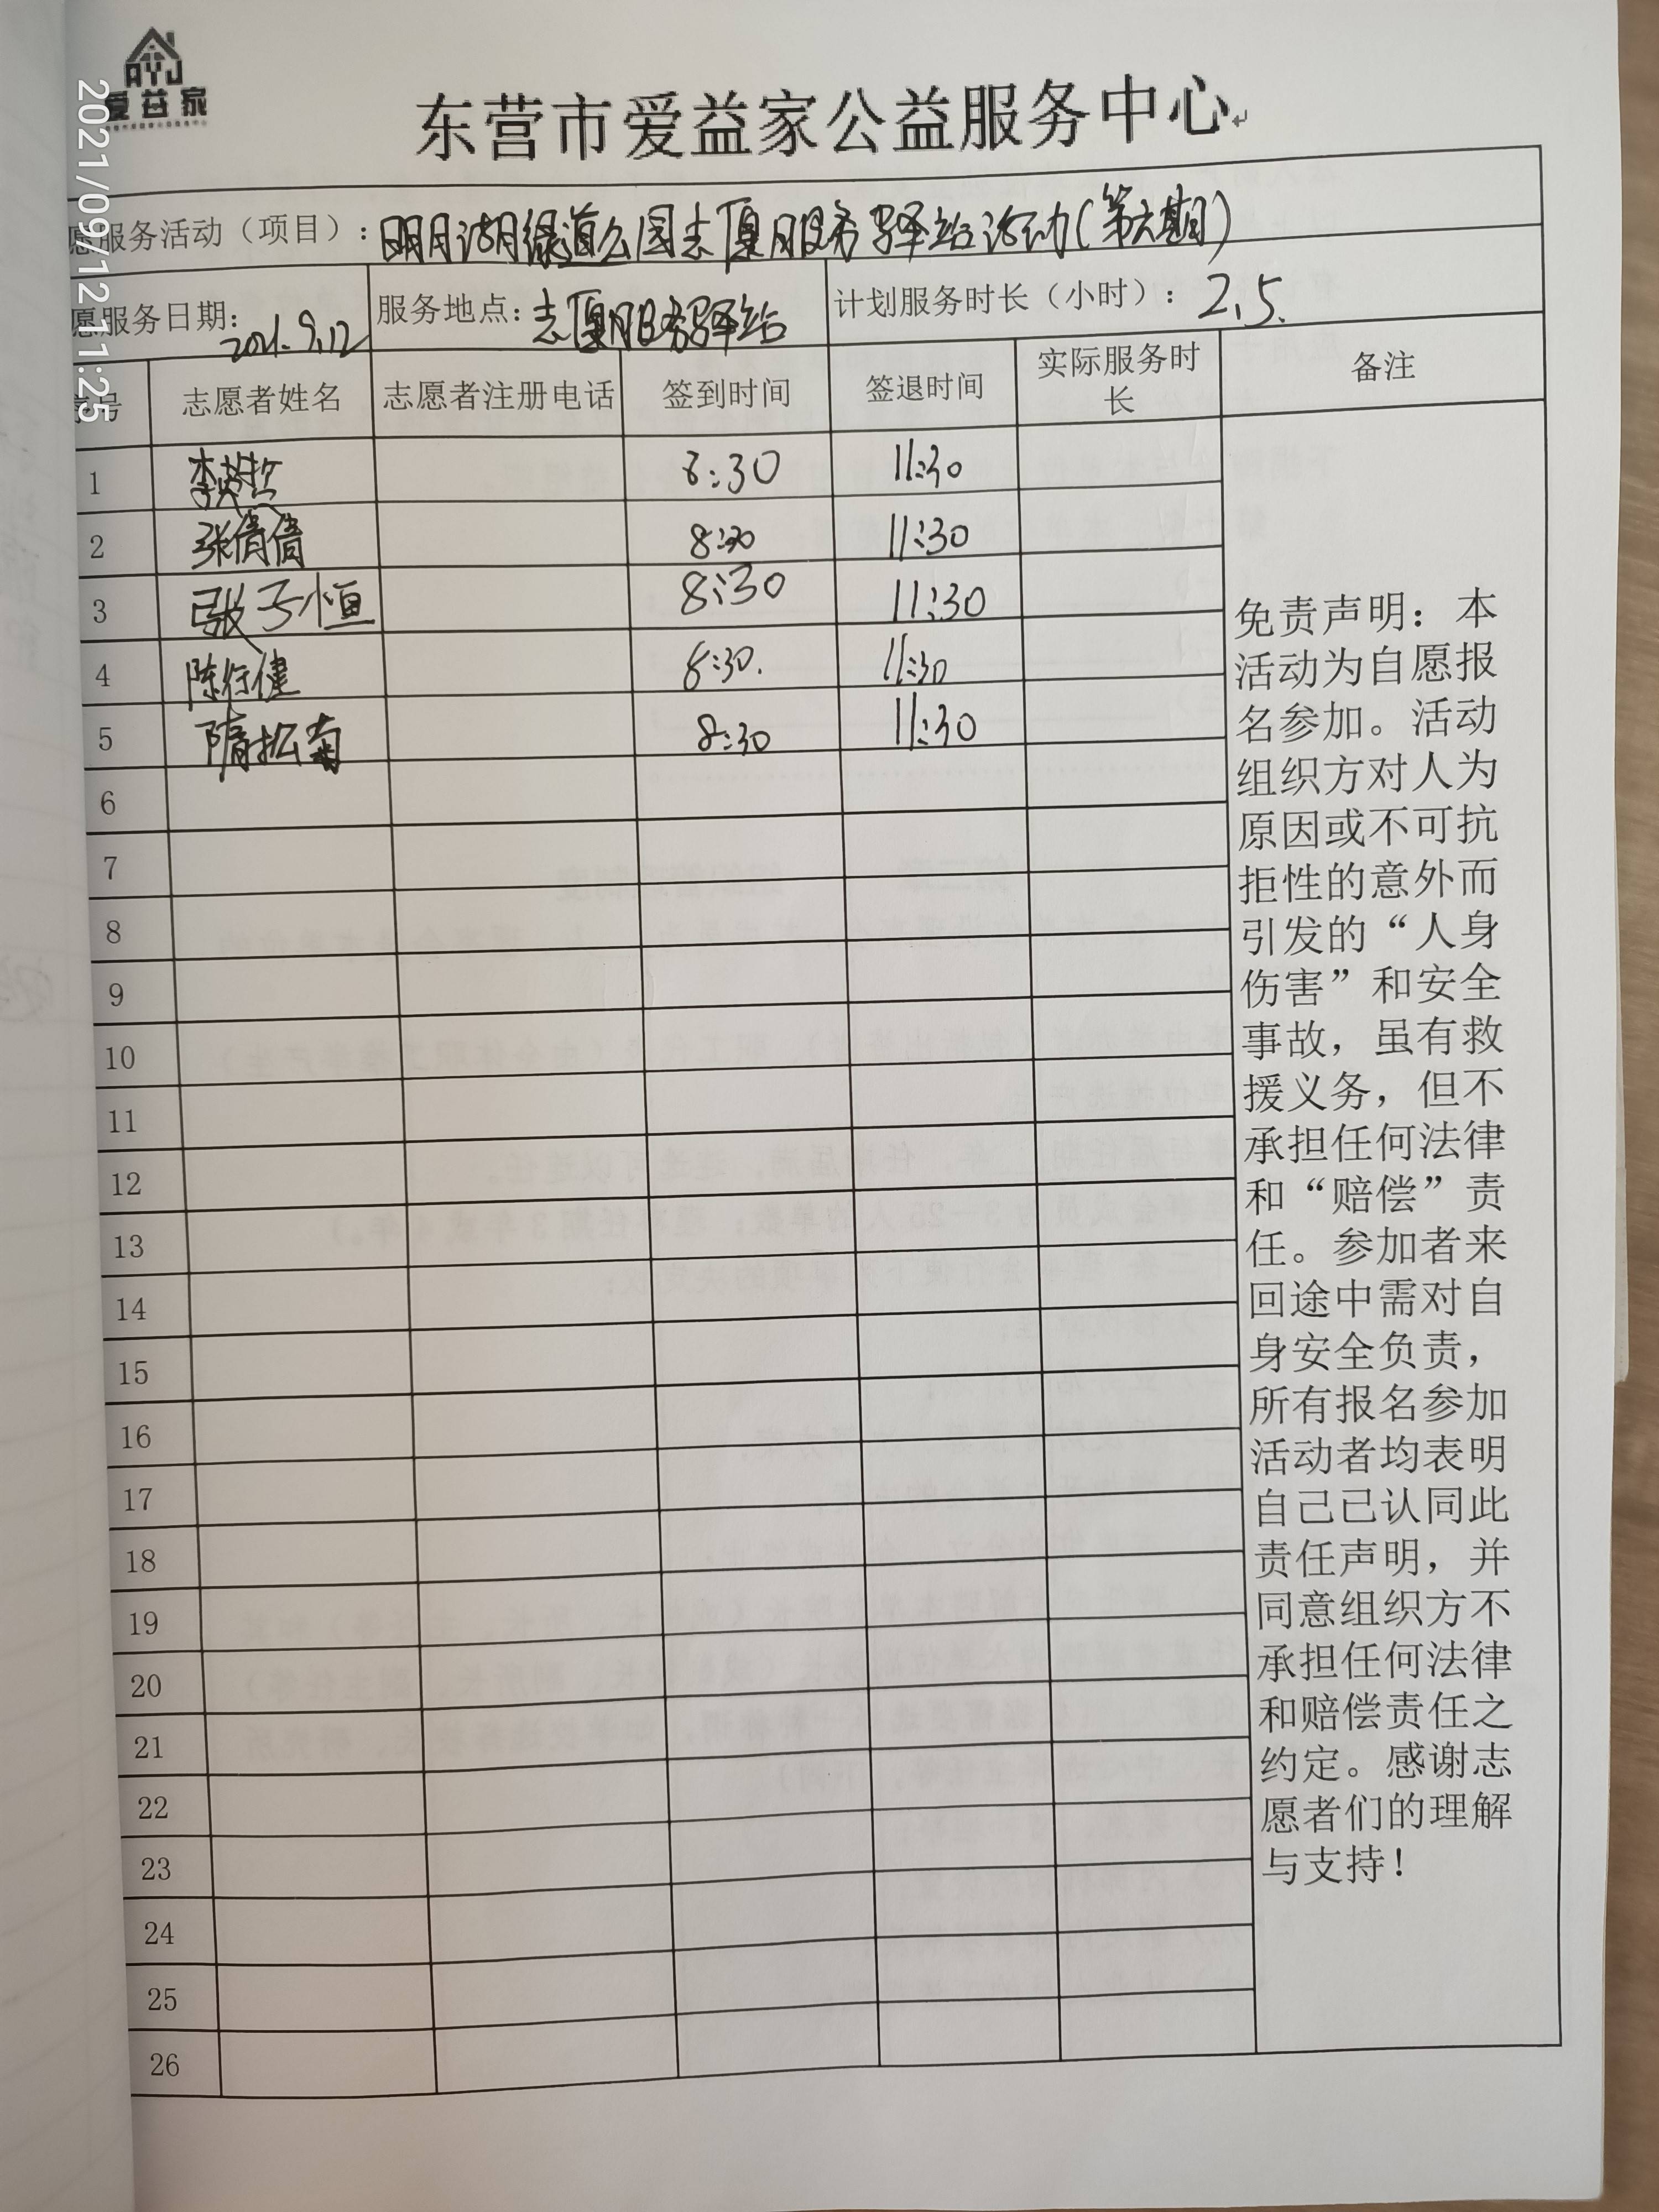 AYJ
爱益家
2021/09/12 11:25
东营市爱益家公益服务中心
愿服务活动（项目）：明月湖绿道公园志愿服务驿站活动(第六期)
愿服务日期：2021.9.12 服务地点：志愿服务驿站 计划服务时长（小时）：2.5.
序号 志愿者姓名 志愿者注册电话 签到时间 签退时间 实际服务时长 备注
1 李英哲 8:30 11:30
2 张倩倩 8:30 11:30
3 张子恒 8:30 11:30
4 陈行健 8:30. 11:30
5 隋松菊 8:30 11:30
6
7
8
9
10
11
12
13
14
15
16
17
18
19
20
21
22
23
24
25
26
免责声明：本
活动为自愿报
名参加。活动
组织方对人为
原因或不可抗
拒性的意外而
引发的“人身
伤害”和安全
事故，虽有救
援义务，但不
承担任何法律
和“赔偿”责
任。参加者来
回途中需对自
身安全负责，
所有报名参加
活动者均表明
自己己认同此
责任声明，并
同意组织方不
承担任何法律
和赔偿责任之
约定。感谢志
愿者们的理解
与支持！